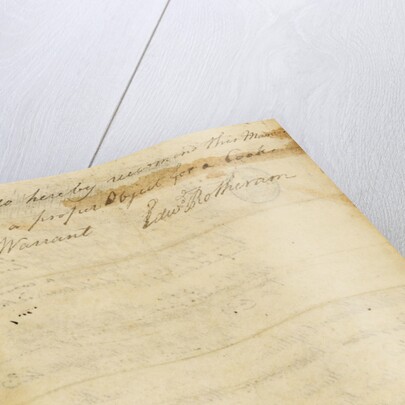 do hereby recommend this Man
a proper Object for a Cooks
Warrant
Edwd Rotheram